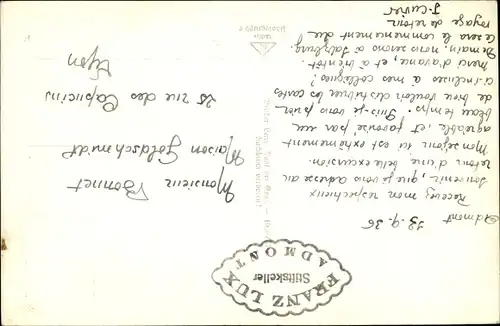 Admont 23.9.36
Recevez mon respectueux
souvenir, que je vous adresse au
retour d'une belle excursion.
Mon séjour ici est extrêmement
agréable, et favorisé par un
beau temps. Puis-je vous prier
de bien vouloir distribuer les cartes
ci-incluses à mes collègues?
Merci d'avance, et à bientôt.
Demain nous serons à Salzburg.
Ce sera le commencement du
voyage de retour.
J. Cuvier
Monsieur Bonnet
Maison Goldschmidt
25 rue des Capucins
Lyon
FRANZ LUX
Stiftskeller
ADMONT